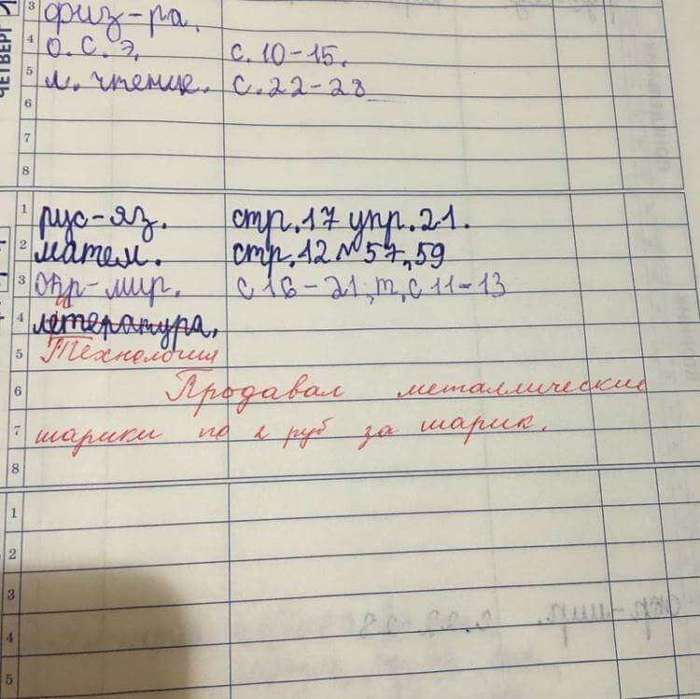 ЧЕТВЕРГ
3 физ-ра.
4 о.с.э. с.10-15.
5 л. чтение. с.22-28
6
7
8
1 рус-яз. стр.17 упр.21.
2 матем. стр.12 №57,59
3 окр-мир. с 16-21, т, с 11-13
4 летература.
и
5 Технология
6 Продавал металлические
7 шарики по 2 руб за шарик.
8
1
2
3
4
5